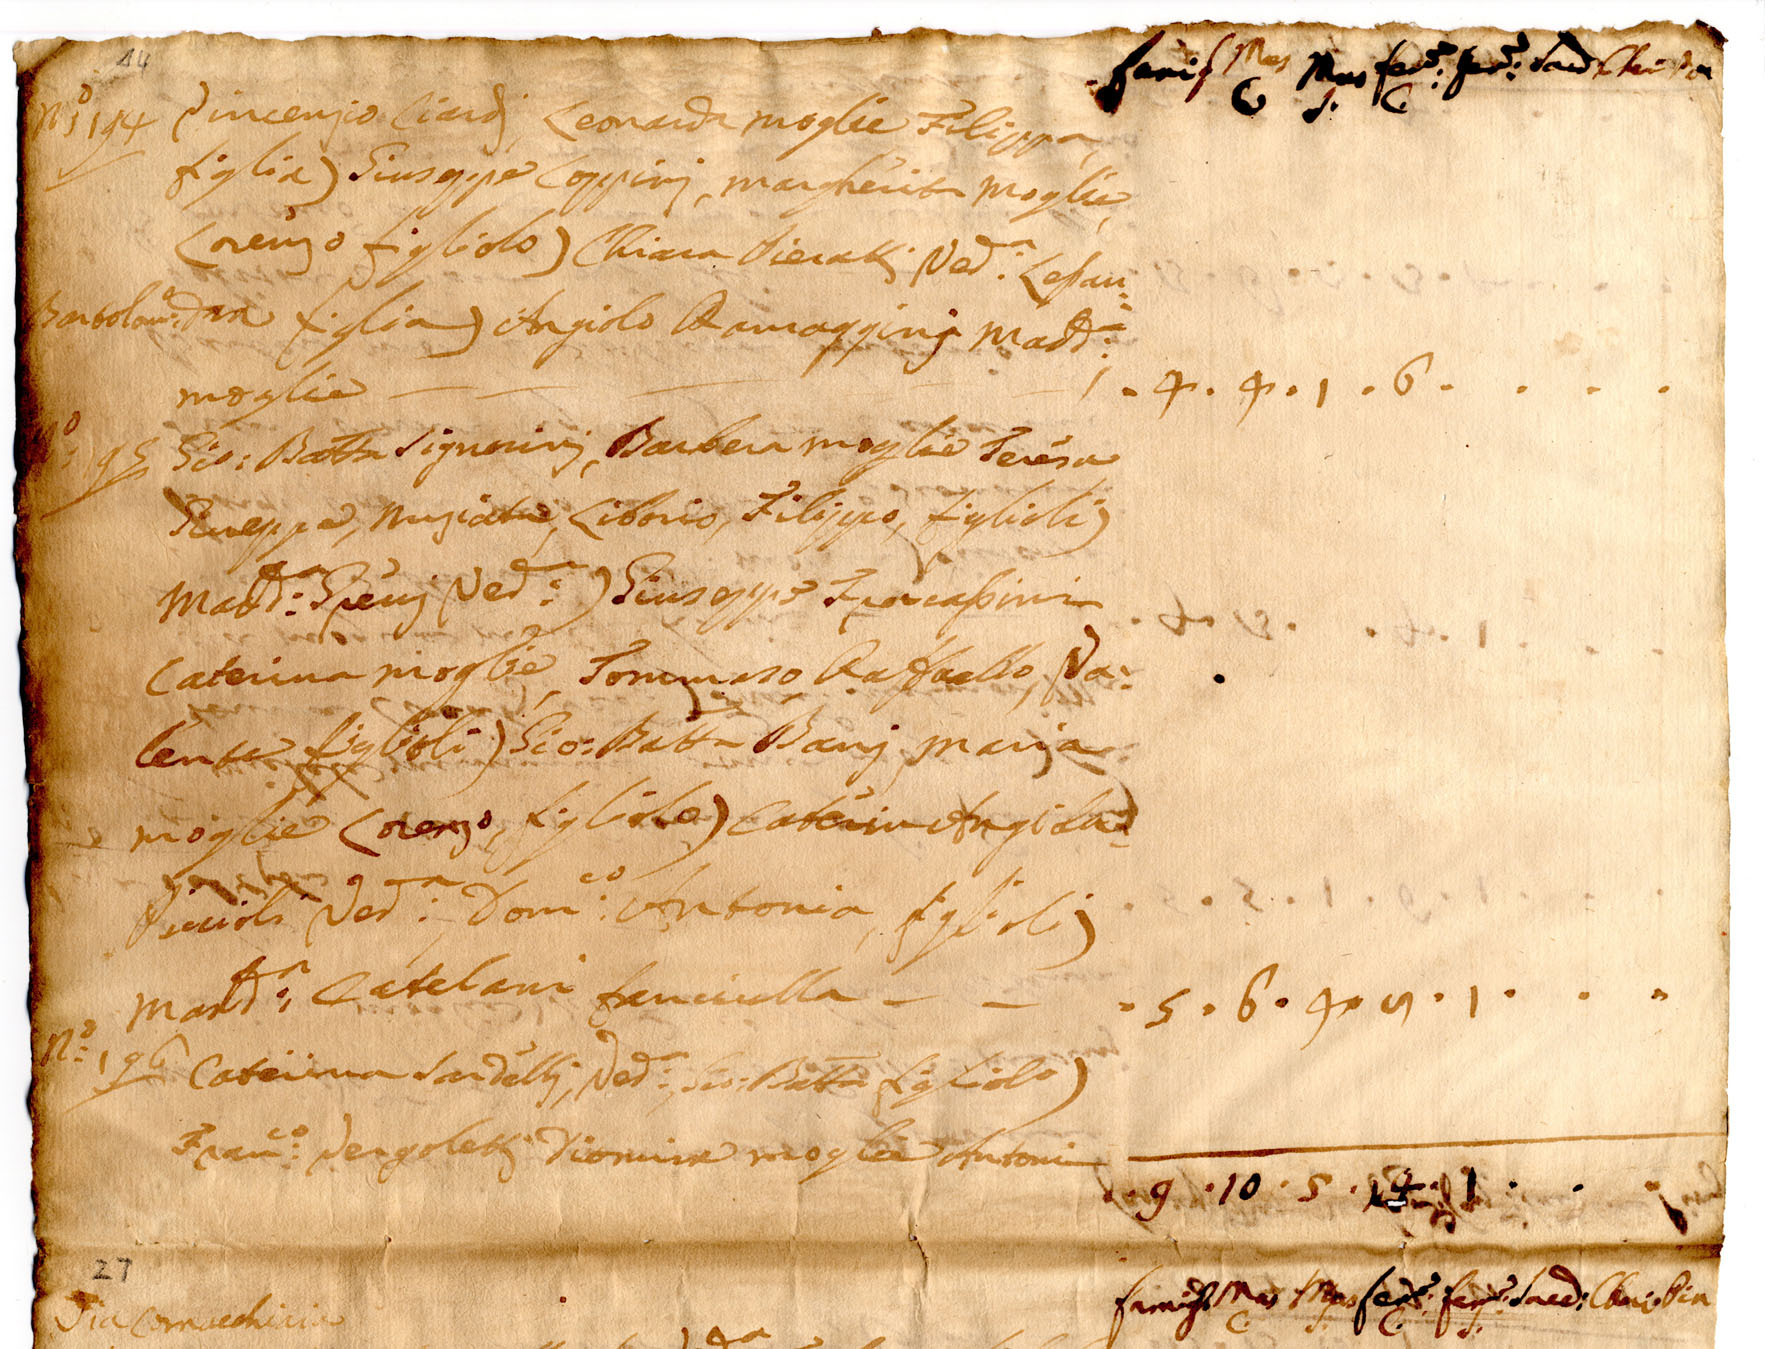 44
famig Mas Mas fem: fem: Sacd Cher Pin
C. S. C.
No: 194 Vincenzio Ciardi, Leonarda moglie Filippa,
figlia) Giuseppe Coppini, margherita moglie,
Lorenzo figliolo) Chiara Pieratti Ved:a Lessan=
Bartolom:o dra figlia) Angiolo Ramaggini Madd:a
moglie — — — — 1 . 4 . 4 . 1 . 6 . . . .
No: 195 Gio: Batta Signorini, Barbera moglie Teresa
Giuseppa, Nuziata, Liborio, Filippo, figlioli)
Madd:a Ved:a) Giuseppe Fracassini
Caterina moglie, Tommaso Raffaello, Va=
lente figlioli) Gio: Batta Bani, maria
moglie Lorenzo, figliolo) Caterin Angiola
Ved:a Dom:co Antonia, figlioli)
Madd:a Catelani fanciulla — — . 5 . 6 . 4 . 5 . 1 . . .
No: 196 Caterina Sardelli, Ved:a, Gio: Batta figliolo)
Franc:o Vergoletti Dionira moglie Antoni
. 9 . 10 . 5 . 14 . 1 . . .
27
famigl Mas Mas fem: fem: Sacd: Cher: Pin
C. S. C. S.
Via Cornacchiaia